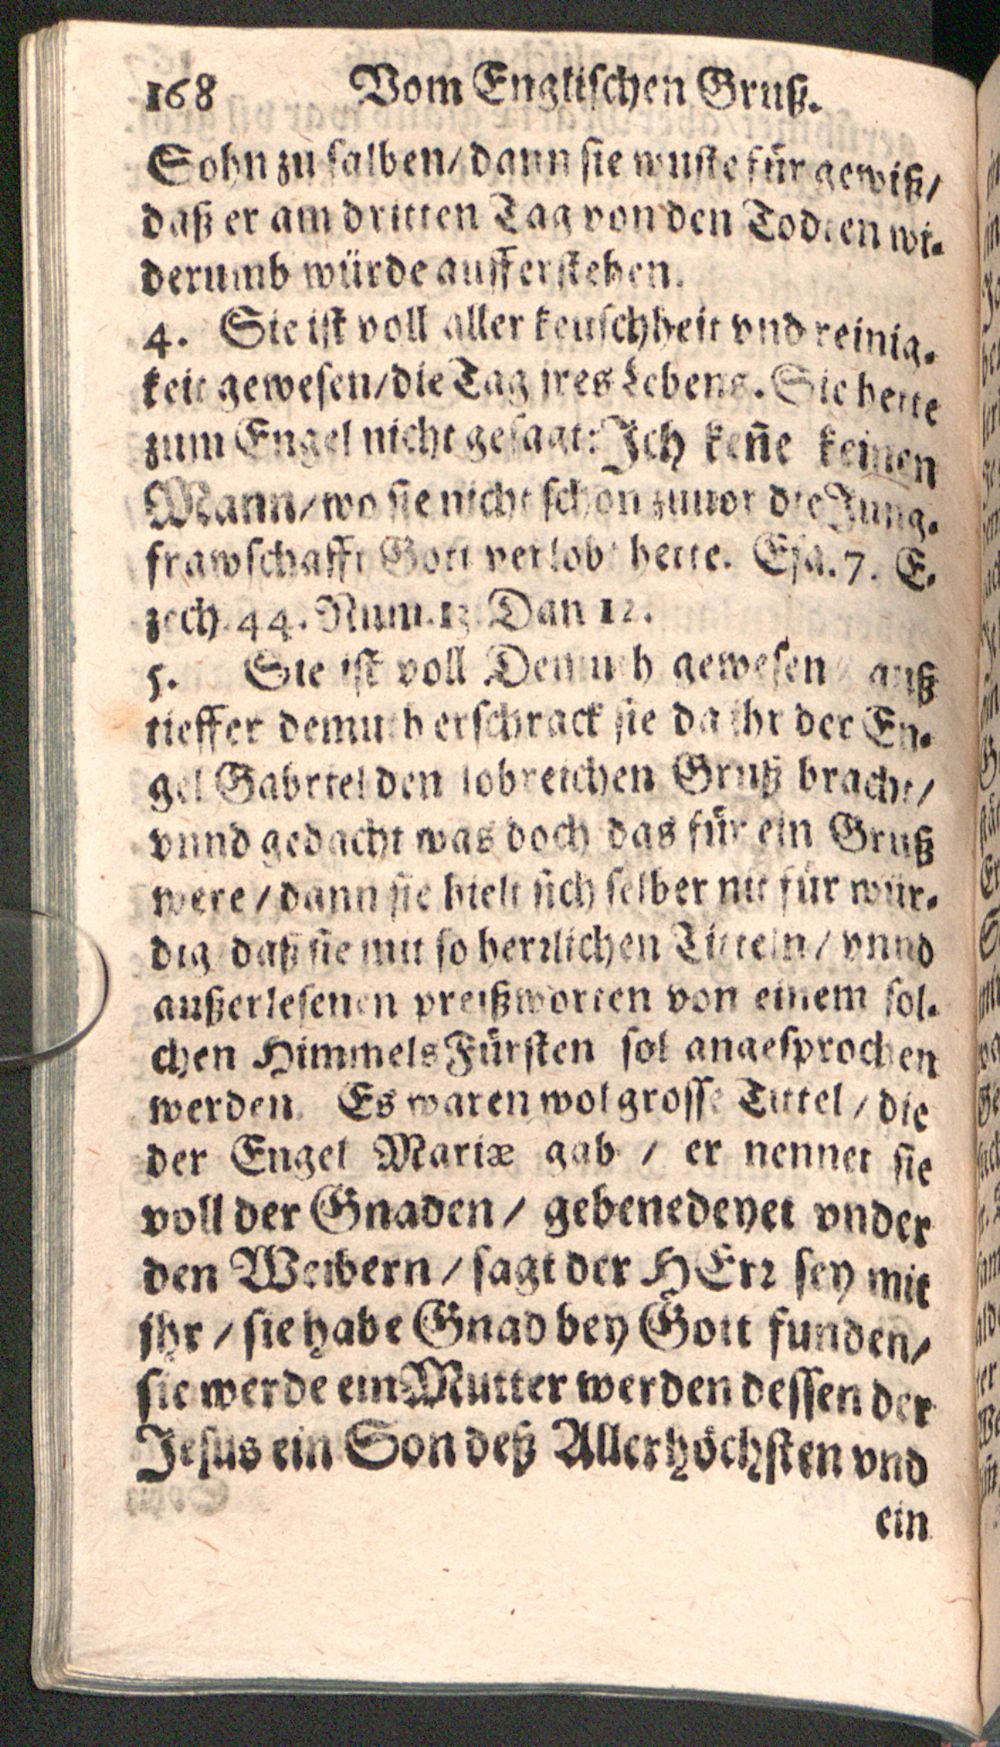 168 Vom Englischen Gruß.
Sohn zu salben/ dann sie wuste für gewiß/
daß er am dritten Tag von den Todten wi-
derumb würde aufferstehen.
4. Sie ist voll aller keuschheit vnd reinig-
keit gewesen/die Tag jres Lebens. Sie hette
zum Engel nicht gesagt: Jch keñe keinen
Mann/wo sie nicht schon zuuor die Jung-
frawschafft Gott verlobt hette. Esa. 7. E-
zech. 44. Num. 13. Dan 12.
5. Sie ist voll Demuth gewesen auß
tieffer demuth erschrack sie da ihr der En-
gel Gabriel den lobreichen Gruß bracht/
vnnd gedacht was doch das für ein Gruß
were / dann sie hielt sich selber nit für wür-
dig daß sie mit so herrlichen Titteln / vnnd
außerlesenen preißworten von einem sol-
chen Himmels Fürsten sol angesprochen
werden. Es waren wol grosse Tittel / die
der Engel Mariæ gab / er nennet sie
voll der Gnaden / gebenedeyet vnder
den Weibern / sagt der HErr sey mit
jhr / sie habe Gnad bey Gott funden/
sie werde ein Mutter werden dessen der
Jesus ein Son deß Allerhöchsten vnd
ein